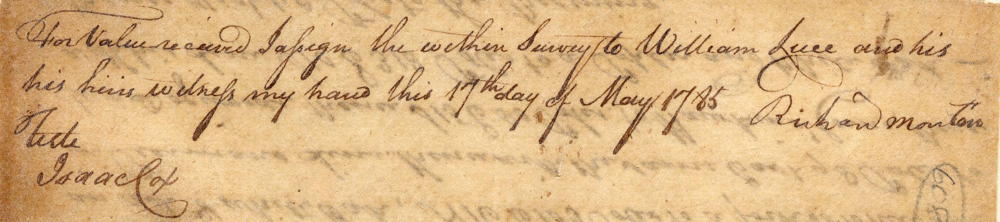 For Value received I assign the within Survey to William Luce and his
his heirs witness my hand this 17th day of May 1785 Richard Monton
Teste
Isaac Cox